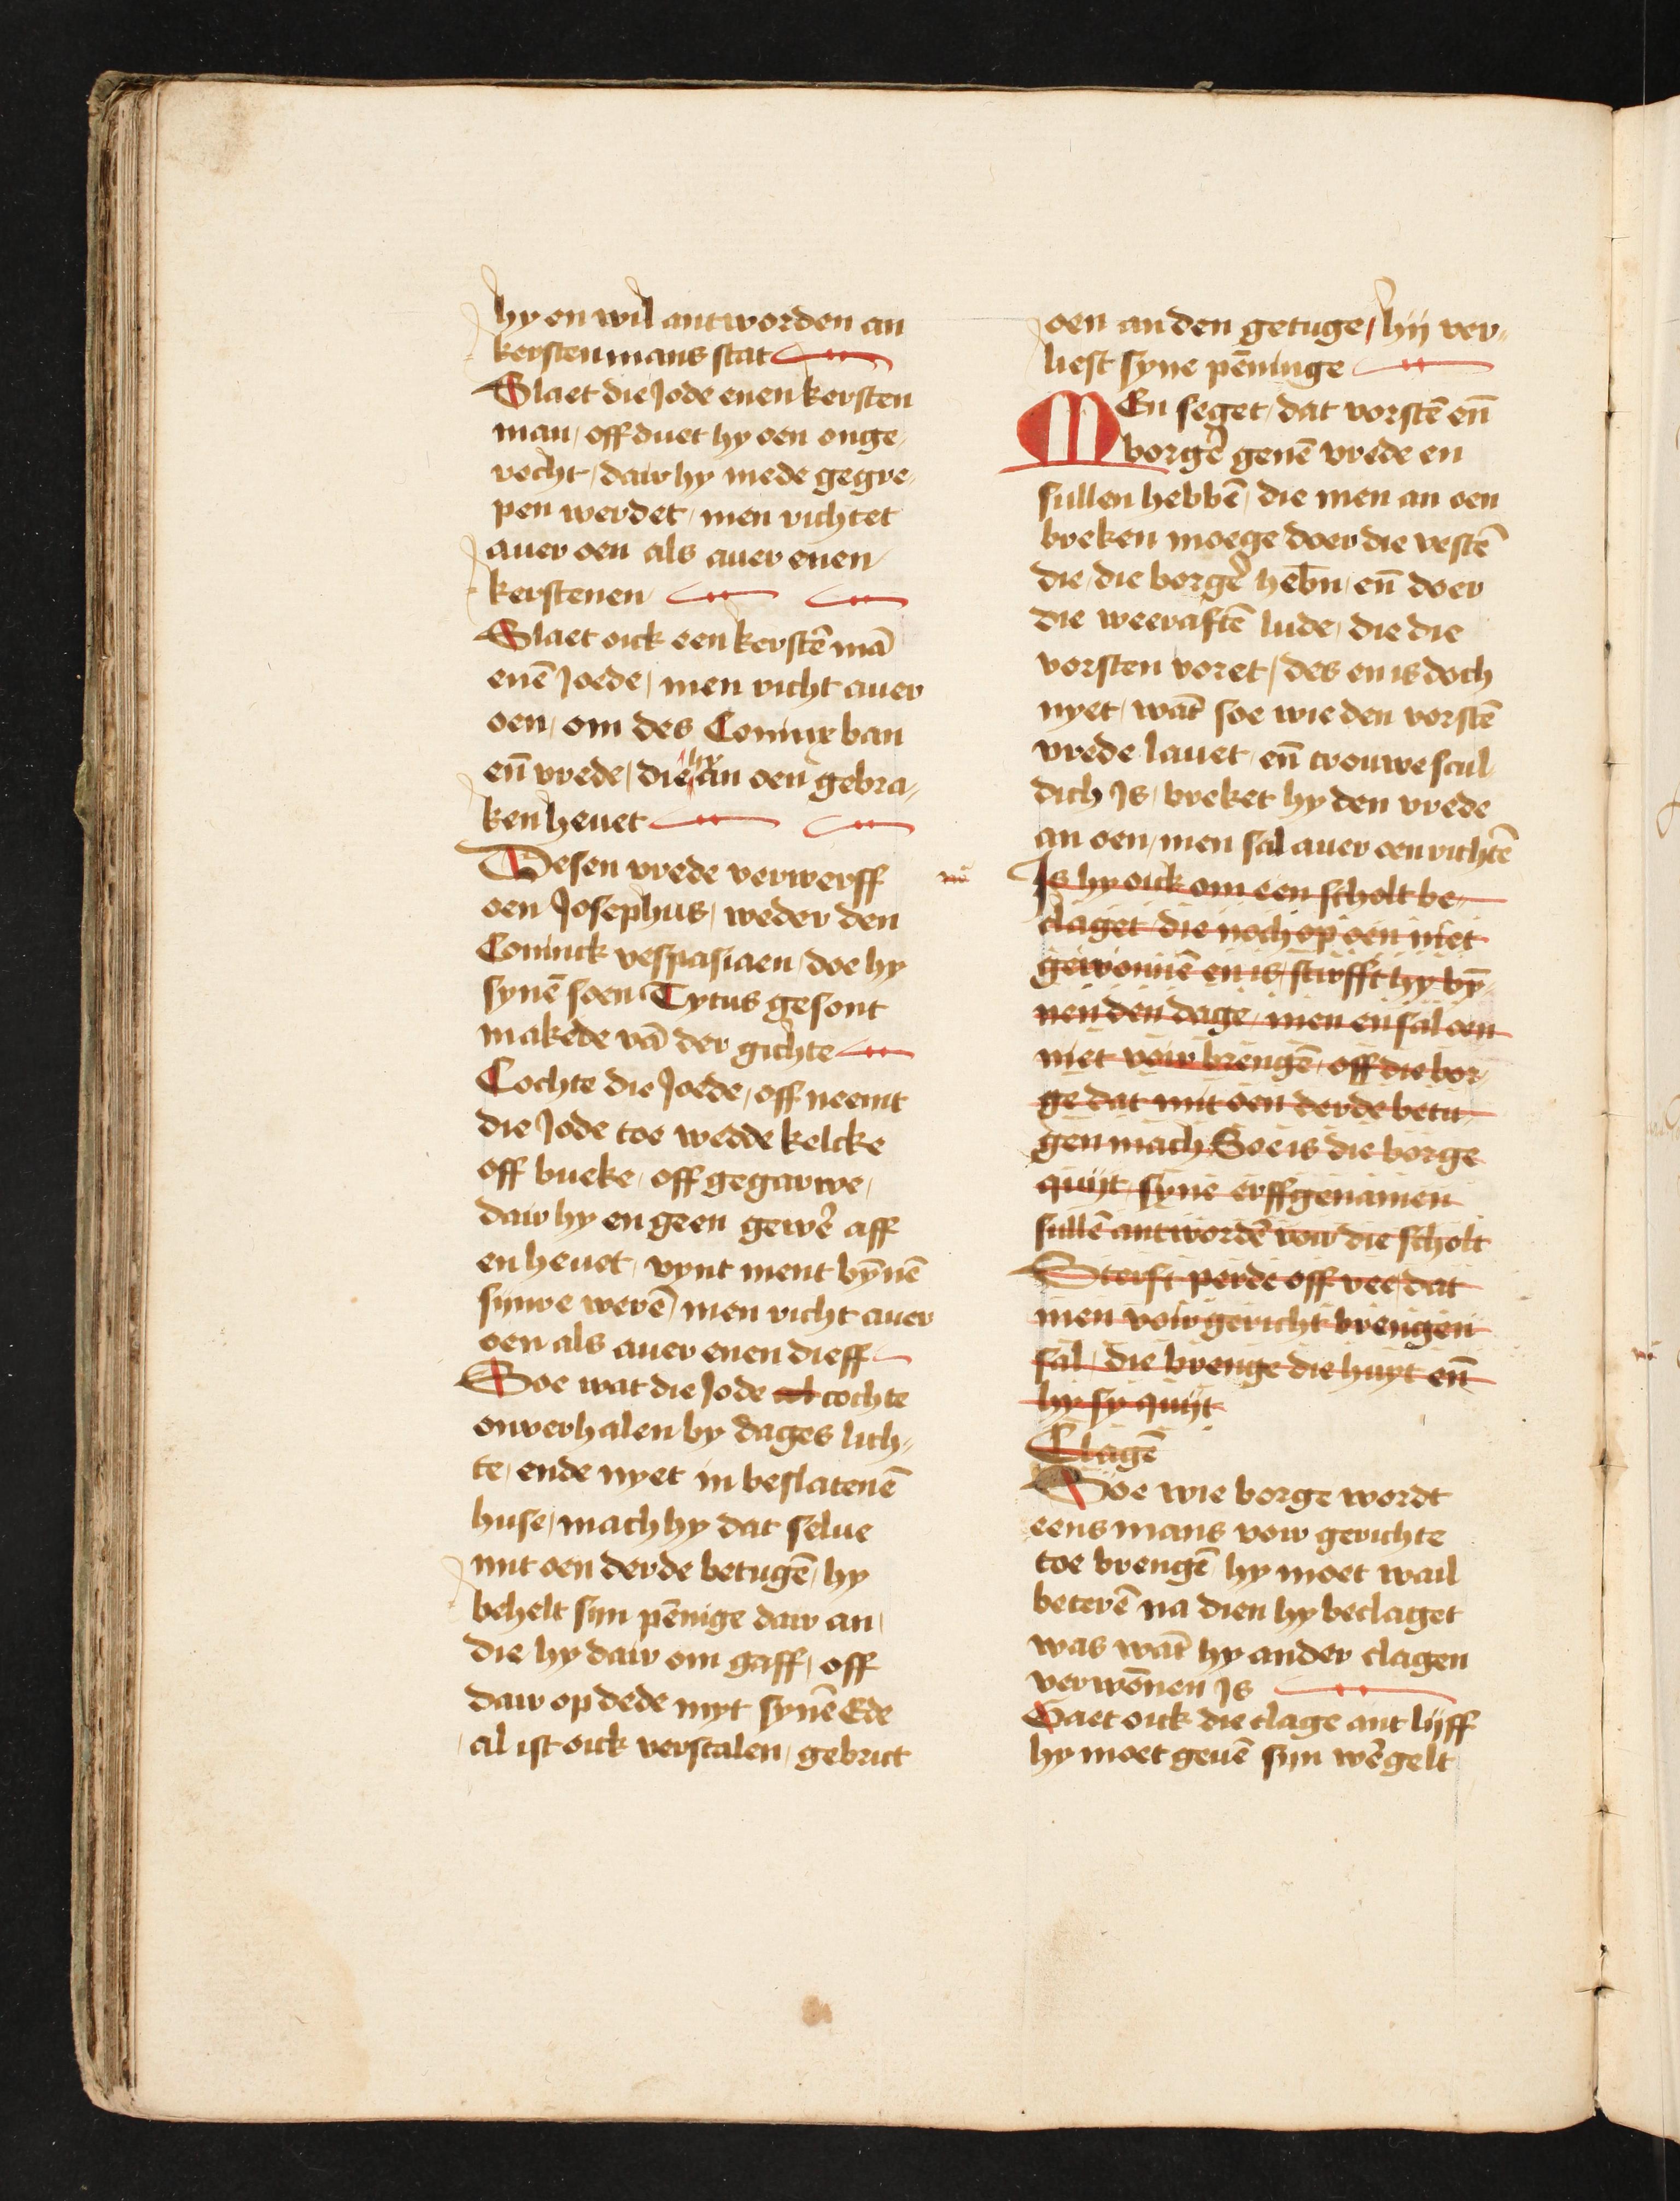 hy en wil antworden an
kersten mans stat
Slaet die Jode enen kersten
man / off duet hy oen onge/
recht / dair hy mede gegre/
pen werdet / men richtet
auer oen als auer enen
kerstenen
Slaet oick een kerstē mā
enē Joede / men richt auer
oen / om des Coninx ban
en̄ vrede / die hy an oen gebra/
ken heuet
Desen vrede verwerff
oen Josephus / weder den
Coninck vespasiaen / doe hy
synē soen Tytus gesont
makede vā der gichte
Cochte die Joede / off neemt
die Jode toe wedde kelcke
off bueke / off gegarwe /
dair hy en geen gewer̄ aff
en heuet / vynt ment bȳnē
sijnre werē / men richt auer
oen als auer enen dieff
Soe wat die Jode cochte
onverhalen by dages lich/
te / ende nyet in beslatenē
huse / mach hy dat selue
mit oen derde betugē / hy
behelt sijn pēnige dair an /
die hy dair om gaff / off
dair op dede myt synē Ede
al ist oick verstalen / gebrict
oen an den getuge / hij ver/
liest syne pēninge
MEn seget / dat vorstē en̄
borgē genē vrede en
sullen hebbē / die men an oen
breken moege doer die vestē
die / die borgē heb̄n / en̄ doer
die weeraftē lude / die die
vorsten voret / des en is doch
nyet / wāt soe wie den vorstē
vrede lauet / en̄ trouwe scul/
dich Js / breket hy den vrede
an oen / men sal auer oen richtē
Js hy oick om een scholt be/
claget die noch op oen niet
gewonnē en is / stirfft hy bȳ/
nen den dage / men en sal oen
niet voir brengē / off die bor/
ge dat mit oen derde betu/
gen mach Soe is die borge
quijt / syne erffgenamen
sullē antwordē voir die scholt
Sterft perde off vee / dat
men voir gericht brengen
sal / die brenge die huyt en̄
hy sy quijt
Clagē
Soe wie borge wordt
eens mans voir gerichte
toe brengē / hy moet wail
beterē na dien hy beclaget
was wāt hy ander clagen
verwōnen Js
Gaet oick die clage ant lijff
hy moet geuē sijn wērgelt